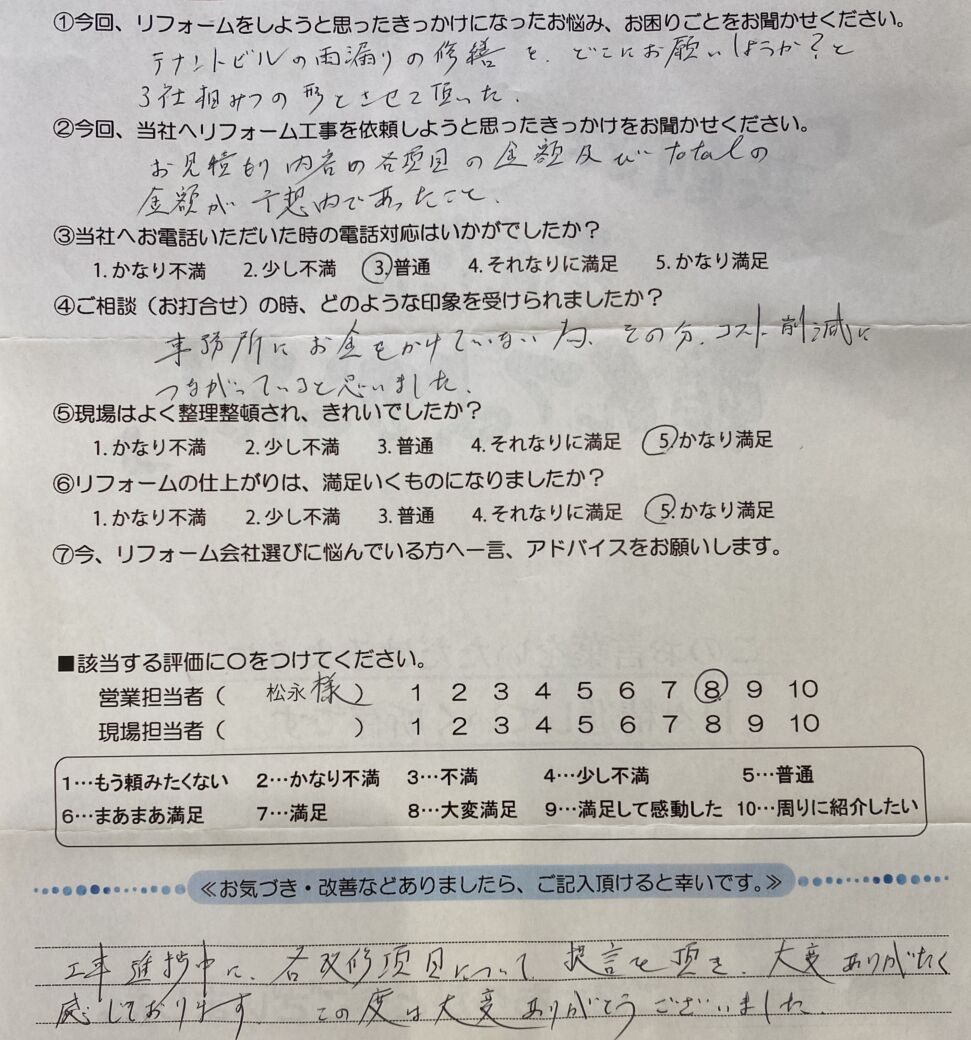 ①今回、リフォームをしようと思ったきっかけになったお悩み、お困りごとをお聞かせください。
テナントビルの雨漏りの修繕を、どこにお願いしようか?と
3社相みつの形とさせて頂いた.
②今回、当社へリフォーム工事を依頼しようと思ったきっかけをお聞かせください。
お見積もり内容の各項目の金額及びtotalの
金額が予想内であったこと.
③当社へお電話いただいた時の電話対応はいかがでしたか?
1. かなり不満 2. 少し不満 3. 普通 4. それなりに満足 5. かなり満足
④ご相談(お打合せ)の時、どのような印象を受けられましたか?
事務所にお金をかけていない為、その分、コスト削減に
つながっていると思いました.
⑤現場はよく整理整頓され、きれいでしたか?
1. かなり不満 2. 少し不満 3. 普通 4. それなりに満足 5. かなり満足
⑥リフォームの仕上がりは、満足いくものになりましたか?
1. かなり不満 2. 少し不満 3. 普通 4. それなりに満足 5. かなり満足
⑦今、リフォーム会社選びに悩んでいる方へ一言、アドバイスをお願いします。
■該当する評価に〇をつけてください。
営業担当者( 松永様 ) 1 2 3 4 5 6 7 8 9 10
現場担当者( ) 1 2 3 4 5 6 7 8 9 10
1…もう頼みたくない 2…かなり不満 3…不満 4…少し不満 5…普通
6…まあまあ満足 7…満足 8…大変満足 9…満足して感動した 10…周りに紹介したい
≪お気づき・改善などありましたら、ご記入頂けると幸いです。≫
工事進捗中に、各改修項目について提言を頂き、大変ありがたく
感じております。この度は大変ありがとうございました.